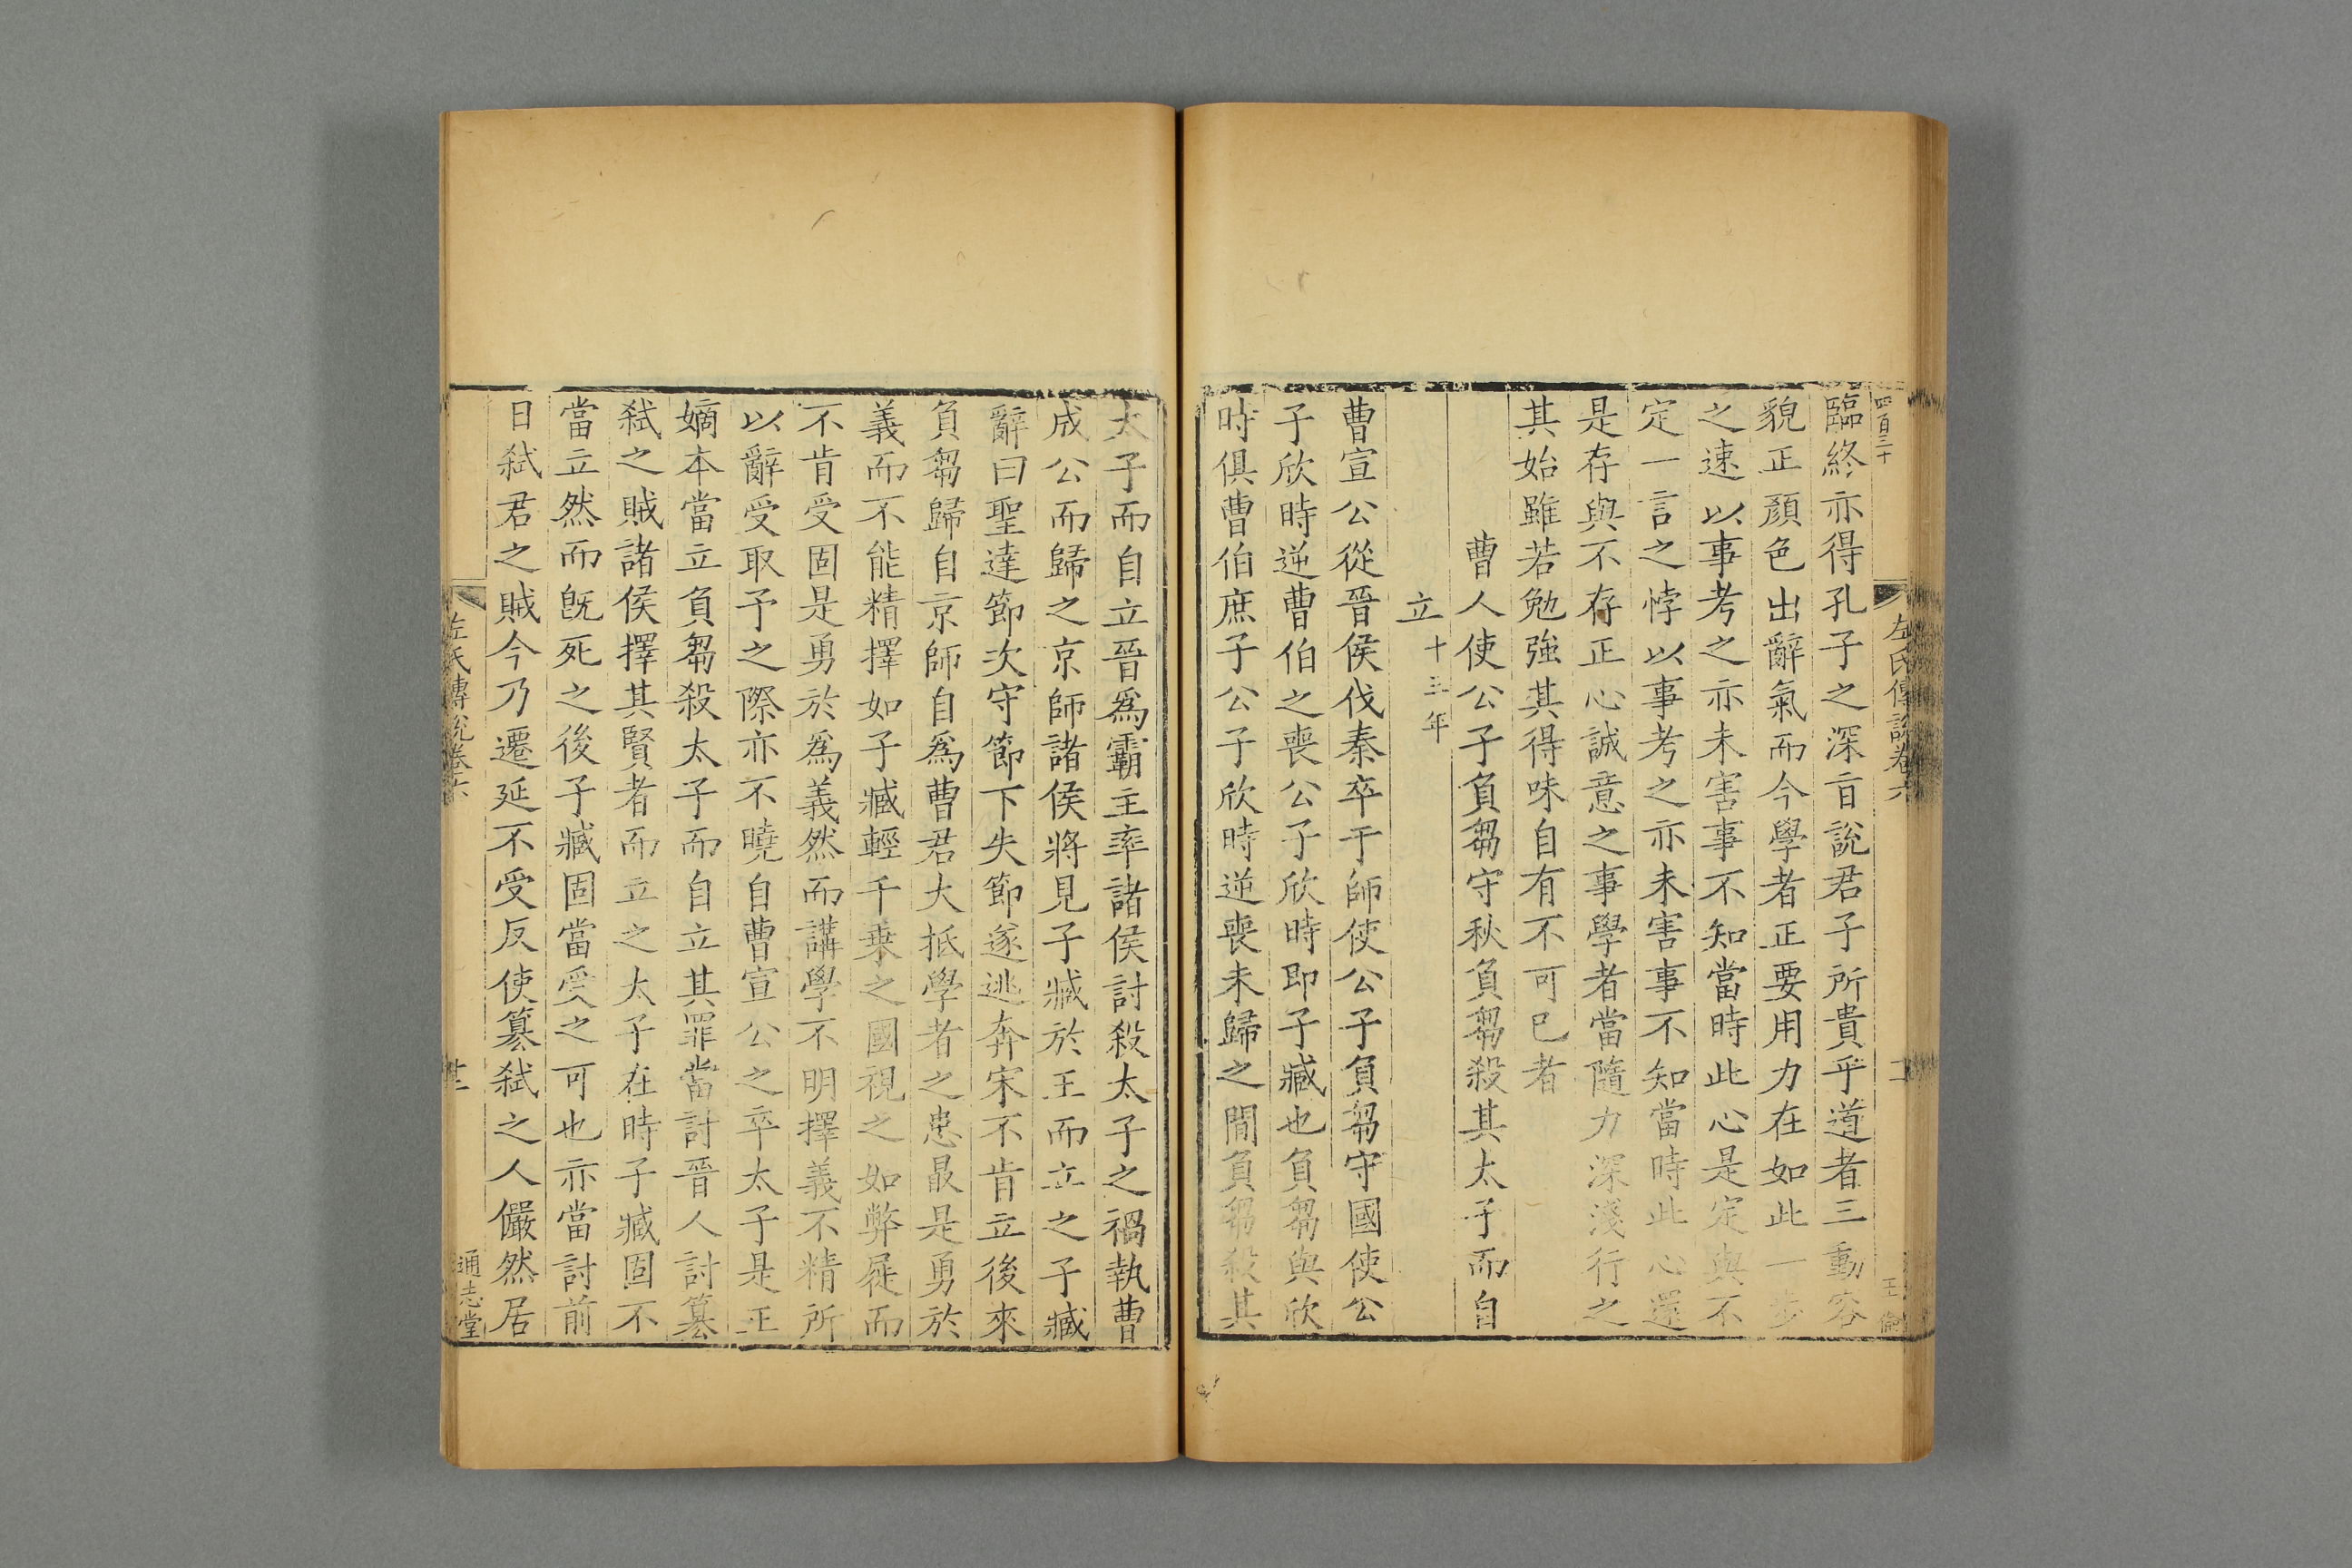 四百三十
左氏傳說卷六
王倫
臨終亦得孔子之深旨說君子所貴乎道者三動容
貌正顏色出辭氣而今學者正要用力在如此一步
之速以事考之亦未害事不知當時此心是定與不
定一言之悖以事考之亦未害事不知當時此心還
是存與不存正心誠意之事學者當隨力深淺行之
其始雖若勉強其得味自有不可已者
曹人使公子負芻守秋負芻殺其太子而自
立十三年
曹宣公從晉侯伐秦卒于師使公子負芻守國使公
子欣時逆曹伯之喪公子欣時即子臧也負芻與欣
時俱曹伯庶子公子欣時逆喪未歸之間負芻殺其
太子而自立晉為霸主率諸侯討殺太子之禍執曹
成公而歸之京師諸侯將見子臧於王而立之子臧
辭曰聖達節次守節下失節遂逃奔宋不肯立後來
負芻歸自京師自為曹君大抵學者之患最是勇於
義而不能精擇如子臧輕千乗之國視之如弊屣而
不肯受固是勇於為義然而講學不明擇義不精所
以辭受取予之際亦不曉自曹宣公之卒太子是正
嫡本當立負芻殺太子而自立其罪當討晉人討篡
弒之賊諸侯擇其賢者而立之太子在時子臧固不
當立然而既死之後子臧固當受之可也亦當討前
日弒君之賊今乃遷延不受反使篡弒之人儼然居
左氏傳說卷六
通志堂